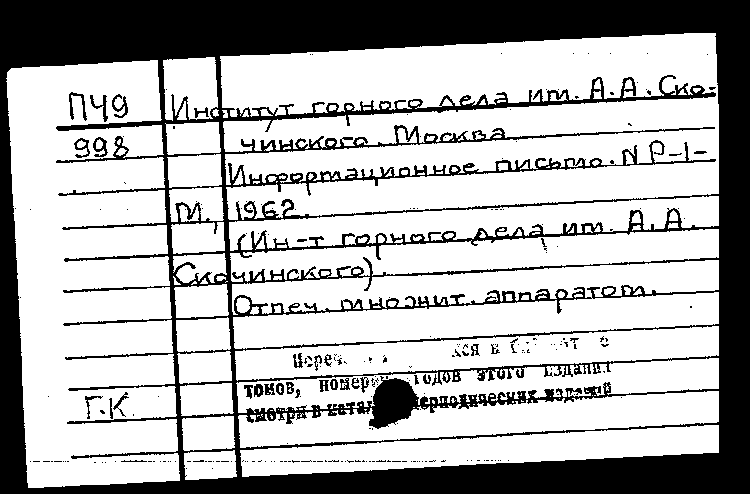 ПЧ9 Институт горного дела им. А.А. Ско-
998 чинского. Москва
Информационное письмо. N Р-1-
М., 1962.
(Ин-т горного дела им. А.А.
Скочинского).
Отпеч. множит. аппаратом.
ся в
томов, годов этого издания
Г.К. смотри в периодических изданий